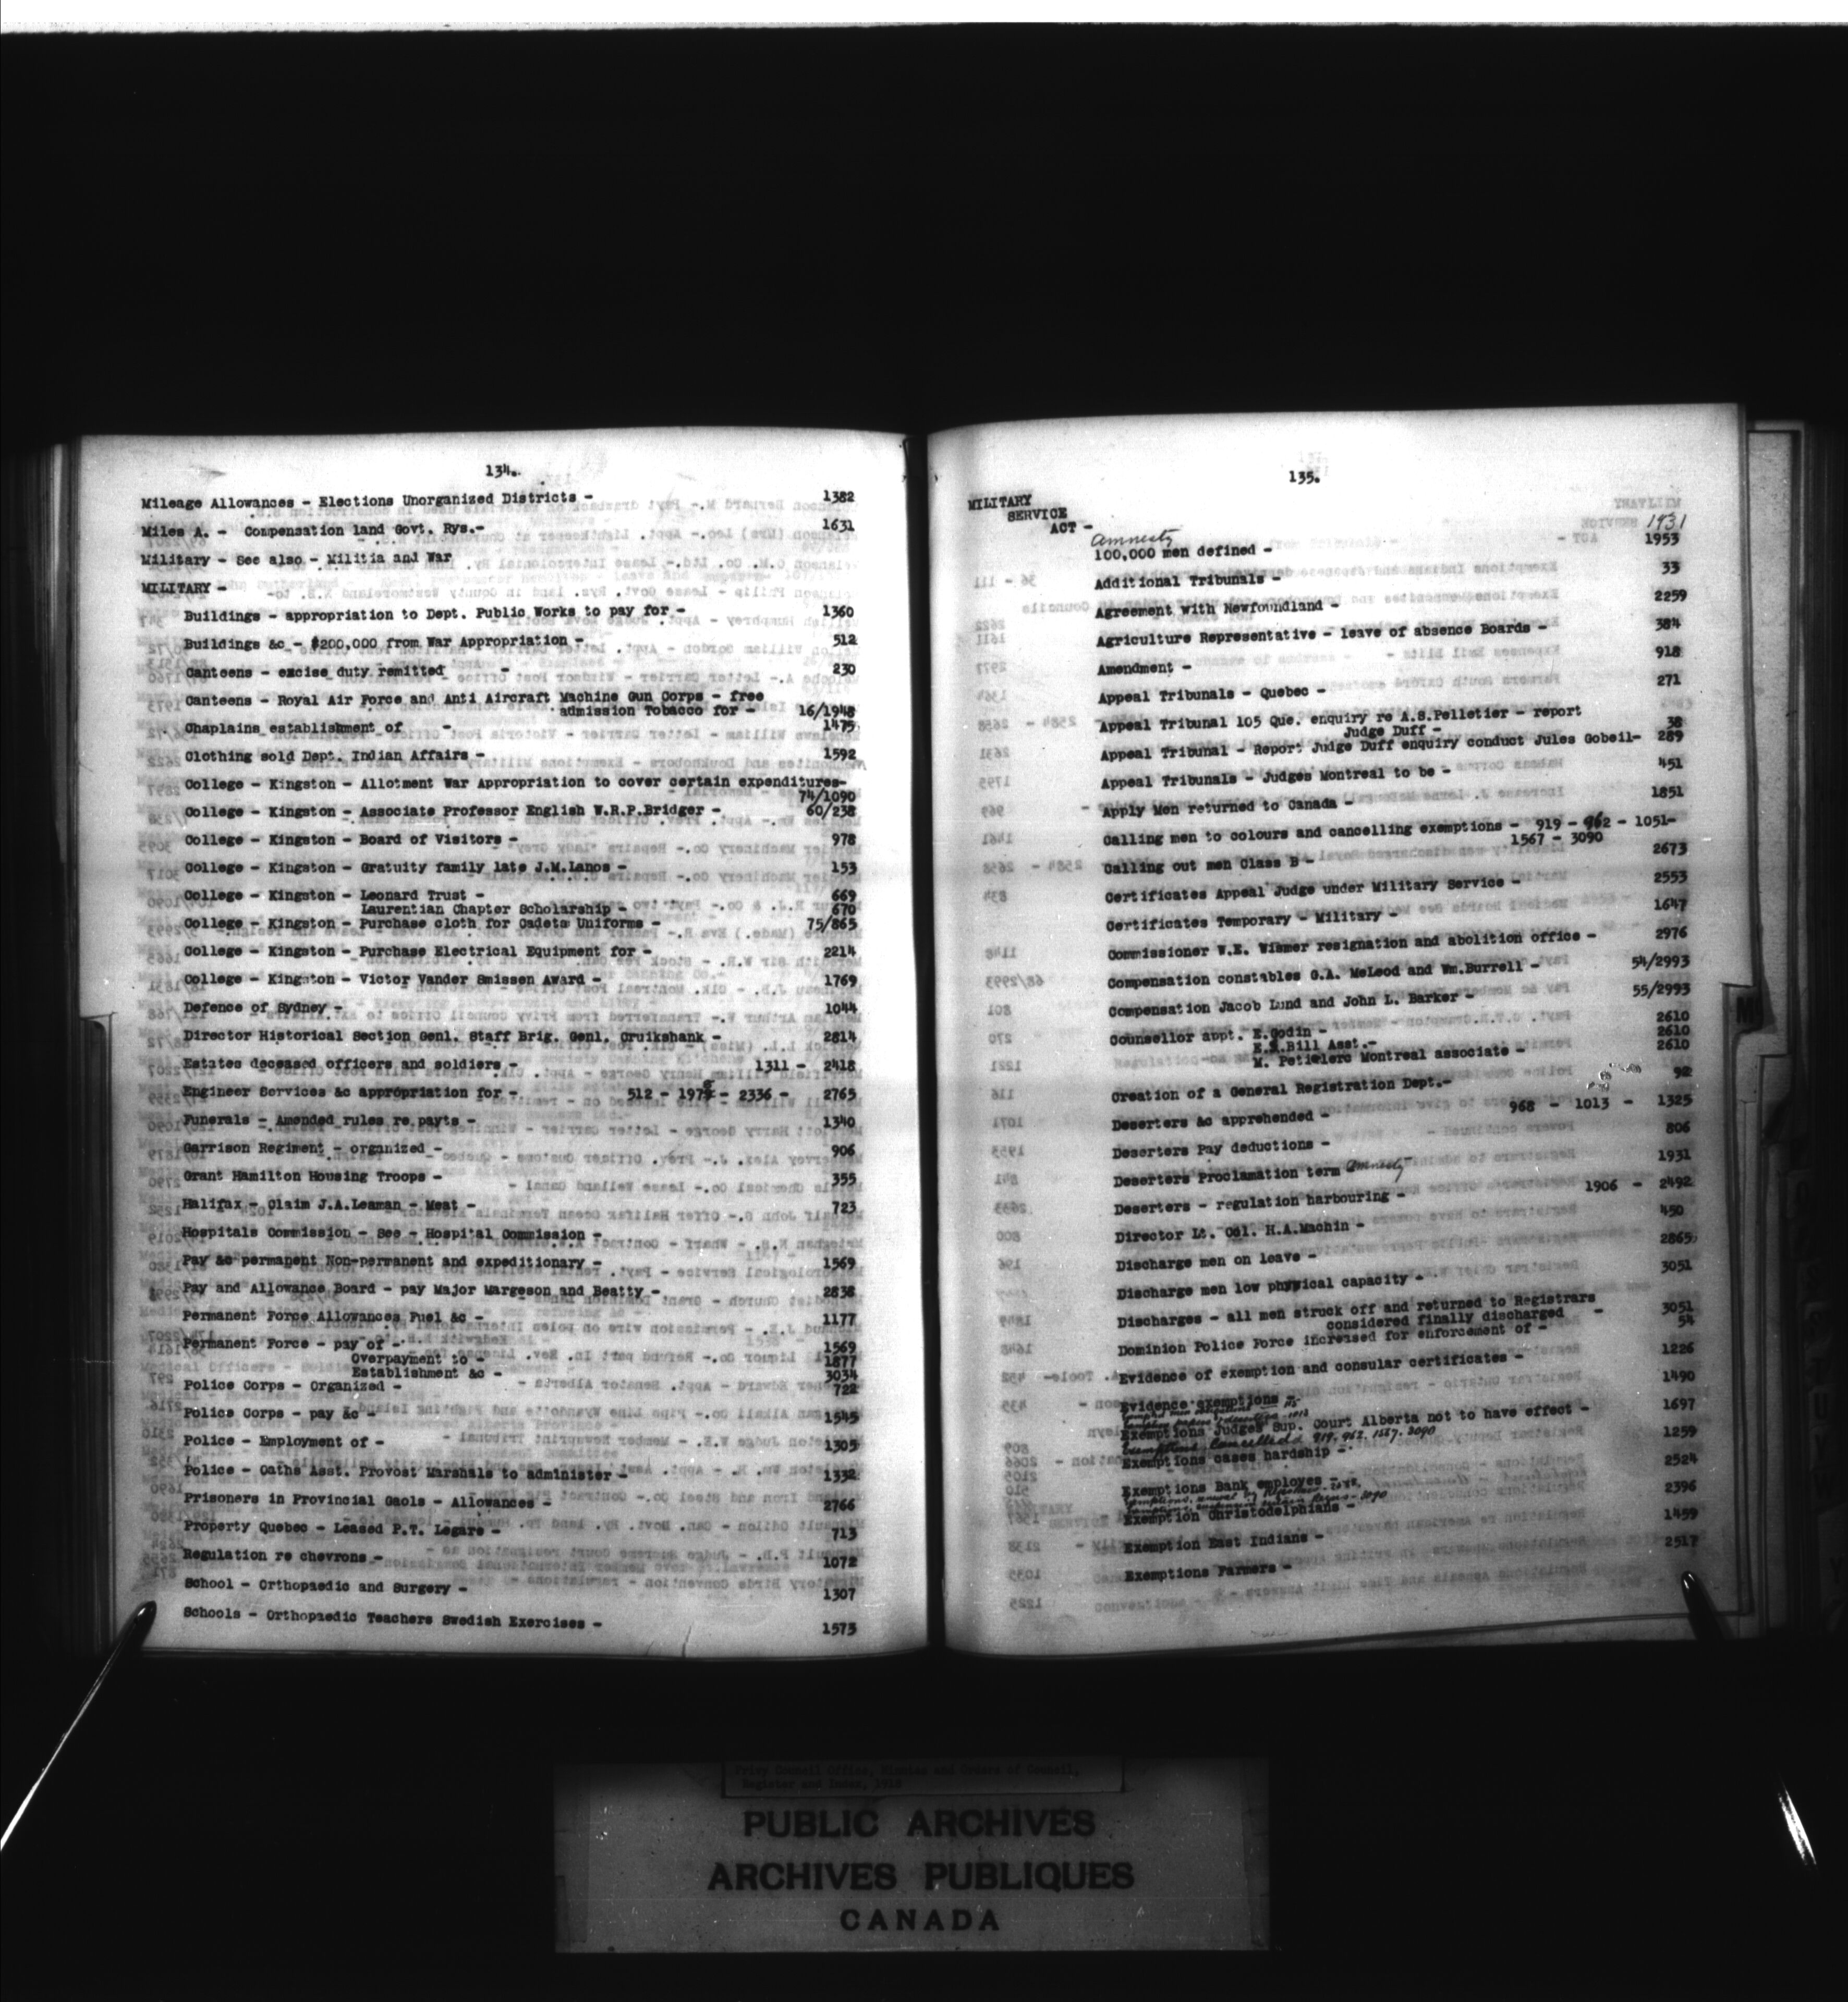 134.
Mileage Allowances - Elections Unorganized Districts - 1382
Miles A. - Compensation land Govt. Rys.- 1631
Military - See also - Militia and War
MILITARY -
Buildings - appropriation to Dept. Public Works to pay for - 1360
Buildings &c - $200,000 from War Appropriation - 512
Canteens - excise duty remitted - 230
Canteens - Royal Air Force and Anti Aircraft Machine Gun Corps - free
admission Tobacco for - 16/1948
Chaplains establishment of - 1475
Clothing sold Dept. Indian Affairs - 1592
College - Kingston - Allotment War Appropriation to cover certain expenditures-
74/1090
College - Kingston - Associate Professor English W.R.P.Bridger - 60/238
College - Kingston - Board of Visitors - 978
College - Kingston - Gratuity family late J.M.Lanos - 153
College - Kingston - Leonard Trust - 669
Laurentian Chapter Scholarship - 670
College - Kingston - Purchase cloth for Cadets Uniforms - 75/865
College - Kingston - Purchase Electrical Equipment for - 2214
College - Kingston - Victor Vander Smissen Award - 1769
Defence of Sydney - 1044
Director Historical Section Genl. Staff Brig. Genl. Cruikshank - 2814
Estates deceased officers and soldiers - 1311 - 2418
Engineer Services &c appropriation for - 512 - 1975 - 2336 - 2765
Funerals - Amended rules re payts - 1340
Garrison Regiment - organized - 906
Grant Hamilton Housing Troops - 355
Halifax - Claim J.A.Leaman - Meat - 723
Hospitals Commission - See - Hospital Commission -
Pay &c permanent Non-permanent and expeditionary - 1569
Pay and Allowance Board - pay Major Margeson and Beatty - 2838
Permanent Force Allowances Fuel &c - 1177
Permanent Force - pay of - 1569
Overpayment to - 1877
Establishment &c - 3034
Police Corps - Organized - 722
Police Corps - pay &c - 1545
Police - Employment of - 1305
Police - Oaths Asst. Provost Marshals to administer - 1332
Prisoners in Provincial Gaols - Allowances - 2766
Property Quebec - Leased P.T. Legare - 713
Regulation re chevrons - 1072
School - Orthopaedic and Surgery - 1307
Schools - Orthopaedic Teachers Swedish Exercises - 1573
135.
MILITARY
SERVICE
ACT -
Amnesty 1931
100,000 men defined - 1953
Additional Tribunals - 33
Agreement with Newfoundland - 2259
Agriculture Representative - leave of absence Boards - 384
Amendment - 918
Appeal Tribunals - Quebec - 271
Appeal Tribunal 105 Que. enquiry re A.S.Pelletier - report
Judge Duff - 38
Appeal Tribunal - Report Judge Duff enquiry conduct Jules Gobeil- 289
Appeal Tribunals - Judges Montreal to be - 451
Apply Men returned to Canada - 1851
Calling men to colours and cancelling exemptions - 919 - 962 - 1051-
1567 - 3090
Calling out men Class B - 2673
Certificates Appeal Judge under Military Service - 2553
Certificates Temporary - Military - 1647
Commissioner W.E. Wismer resignation and abolition office - 2976
Compensation constables G.A. McLeod and Wm.Burrell - 54/2993
Compensation Jacob Lund and John L. Barker - 55/2993
Counsellor appt. E.Godin - 2610
Bill Asst.- 2610
M. Montreal associate - 2610
Creation of a General Registration Dept.- 92
Deserters &c apprehended - 968 - 1013 - 1325
Deserters Pay deductions - 806
Deserters Proclamation term Amnesty 1931
Deserters - regulation harbouring - 1906 - 2492
Director Lt. Col. H.A.Machin - 450
Discharge men on leave - 2865
Discharge men low physical capacity - 3051
Discharges - all men struck off and returned to Registrars
considered finally discharged - 3051
Dominion Police Force increased for enforcement of - 54
Evidence of exemption and consular certificates - 1226
Evidence exemptions - 1490
Exemptions Judges Sup. Court Alberta not to have effect - 1697
Exemptions Cancelled 919. 962. 1567. 3090
Exemptions cases hardship - 1259
Exemptions Bank employes - 2524
Exemption Christodelphians - 2396
Exemption East Indians - 1459
Exemptions Farmers - 2517
Privy Council Office, Minutes and Orders of Council,
Register and Index, 1918
PUBLIC ARCHIVES
ARCHIVES PUBLIQUES
CANADA